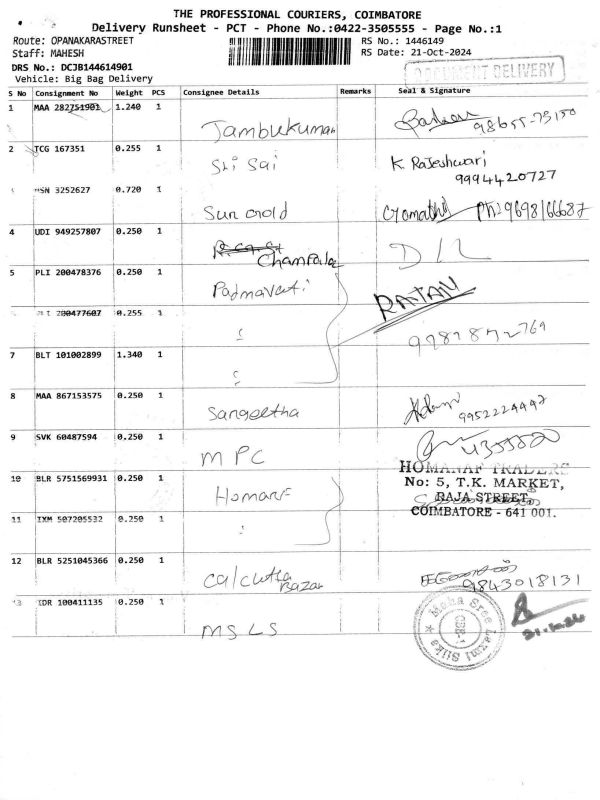 THE PROFESSIONAL COURIERS, COIMBATORE
Delivery Runsheet - PCT - Phone No.:0422-3505555 - Page No.:1
Route: OPANAKARASTREET
RS No.: 1446149
Staff: MAHESH
RS Date: 21-Oct-2024
DRS No.: DCJB144614901
DOCUMENT DELIVERY
Vehicle: Big Bag Delivery
S No Consignment No Weight PCS Consignee Details Remarks Seal & Signature
1 MAA 282751901 1.240 1
Jambukumar
2 TCG 167351 0.255 1
Sri Sai K. Rajeshwari
9994420727
MSN 3252627 0.720 1
Sun Gold Gomathi Ph: 9698166687
4 UDI 949257807 0.250 1
Champala
5 PLI 200478376 0.250 1
Padmavati RATAN
200477607 0.255 1
:
7 BLT 101002899 1.340 1
:
8 MAA 867153575 0.250 1
Sangeetha 9952224447
9 SVK 60487594 0.250 1
MPC
HOMANAF TRADERS
10 BLR 5751569931 0.250 1
No: 5, T.K. MARKET,
Homanaf
RAJA STREET,
COIMBATORE - 641 001.
11 IXM 507205532 0.250 1
:
12 BLR 5251045366 0.250 1
Calcutta Bazar 9843018131
13 IDR 100411135 0.250 1
MSLS
Maha Sree Laxmi Silks
CBE-1
21.10.24